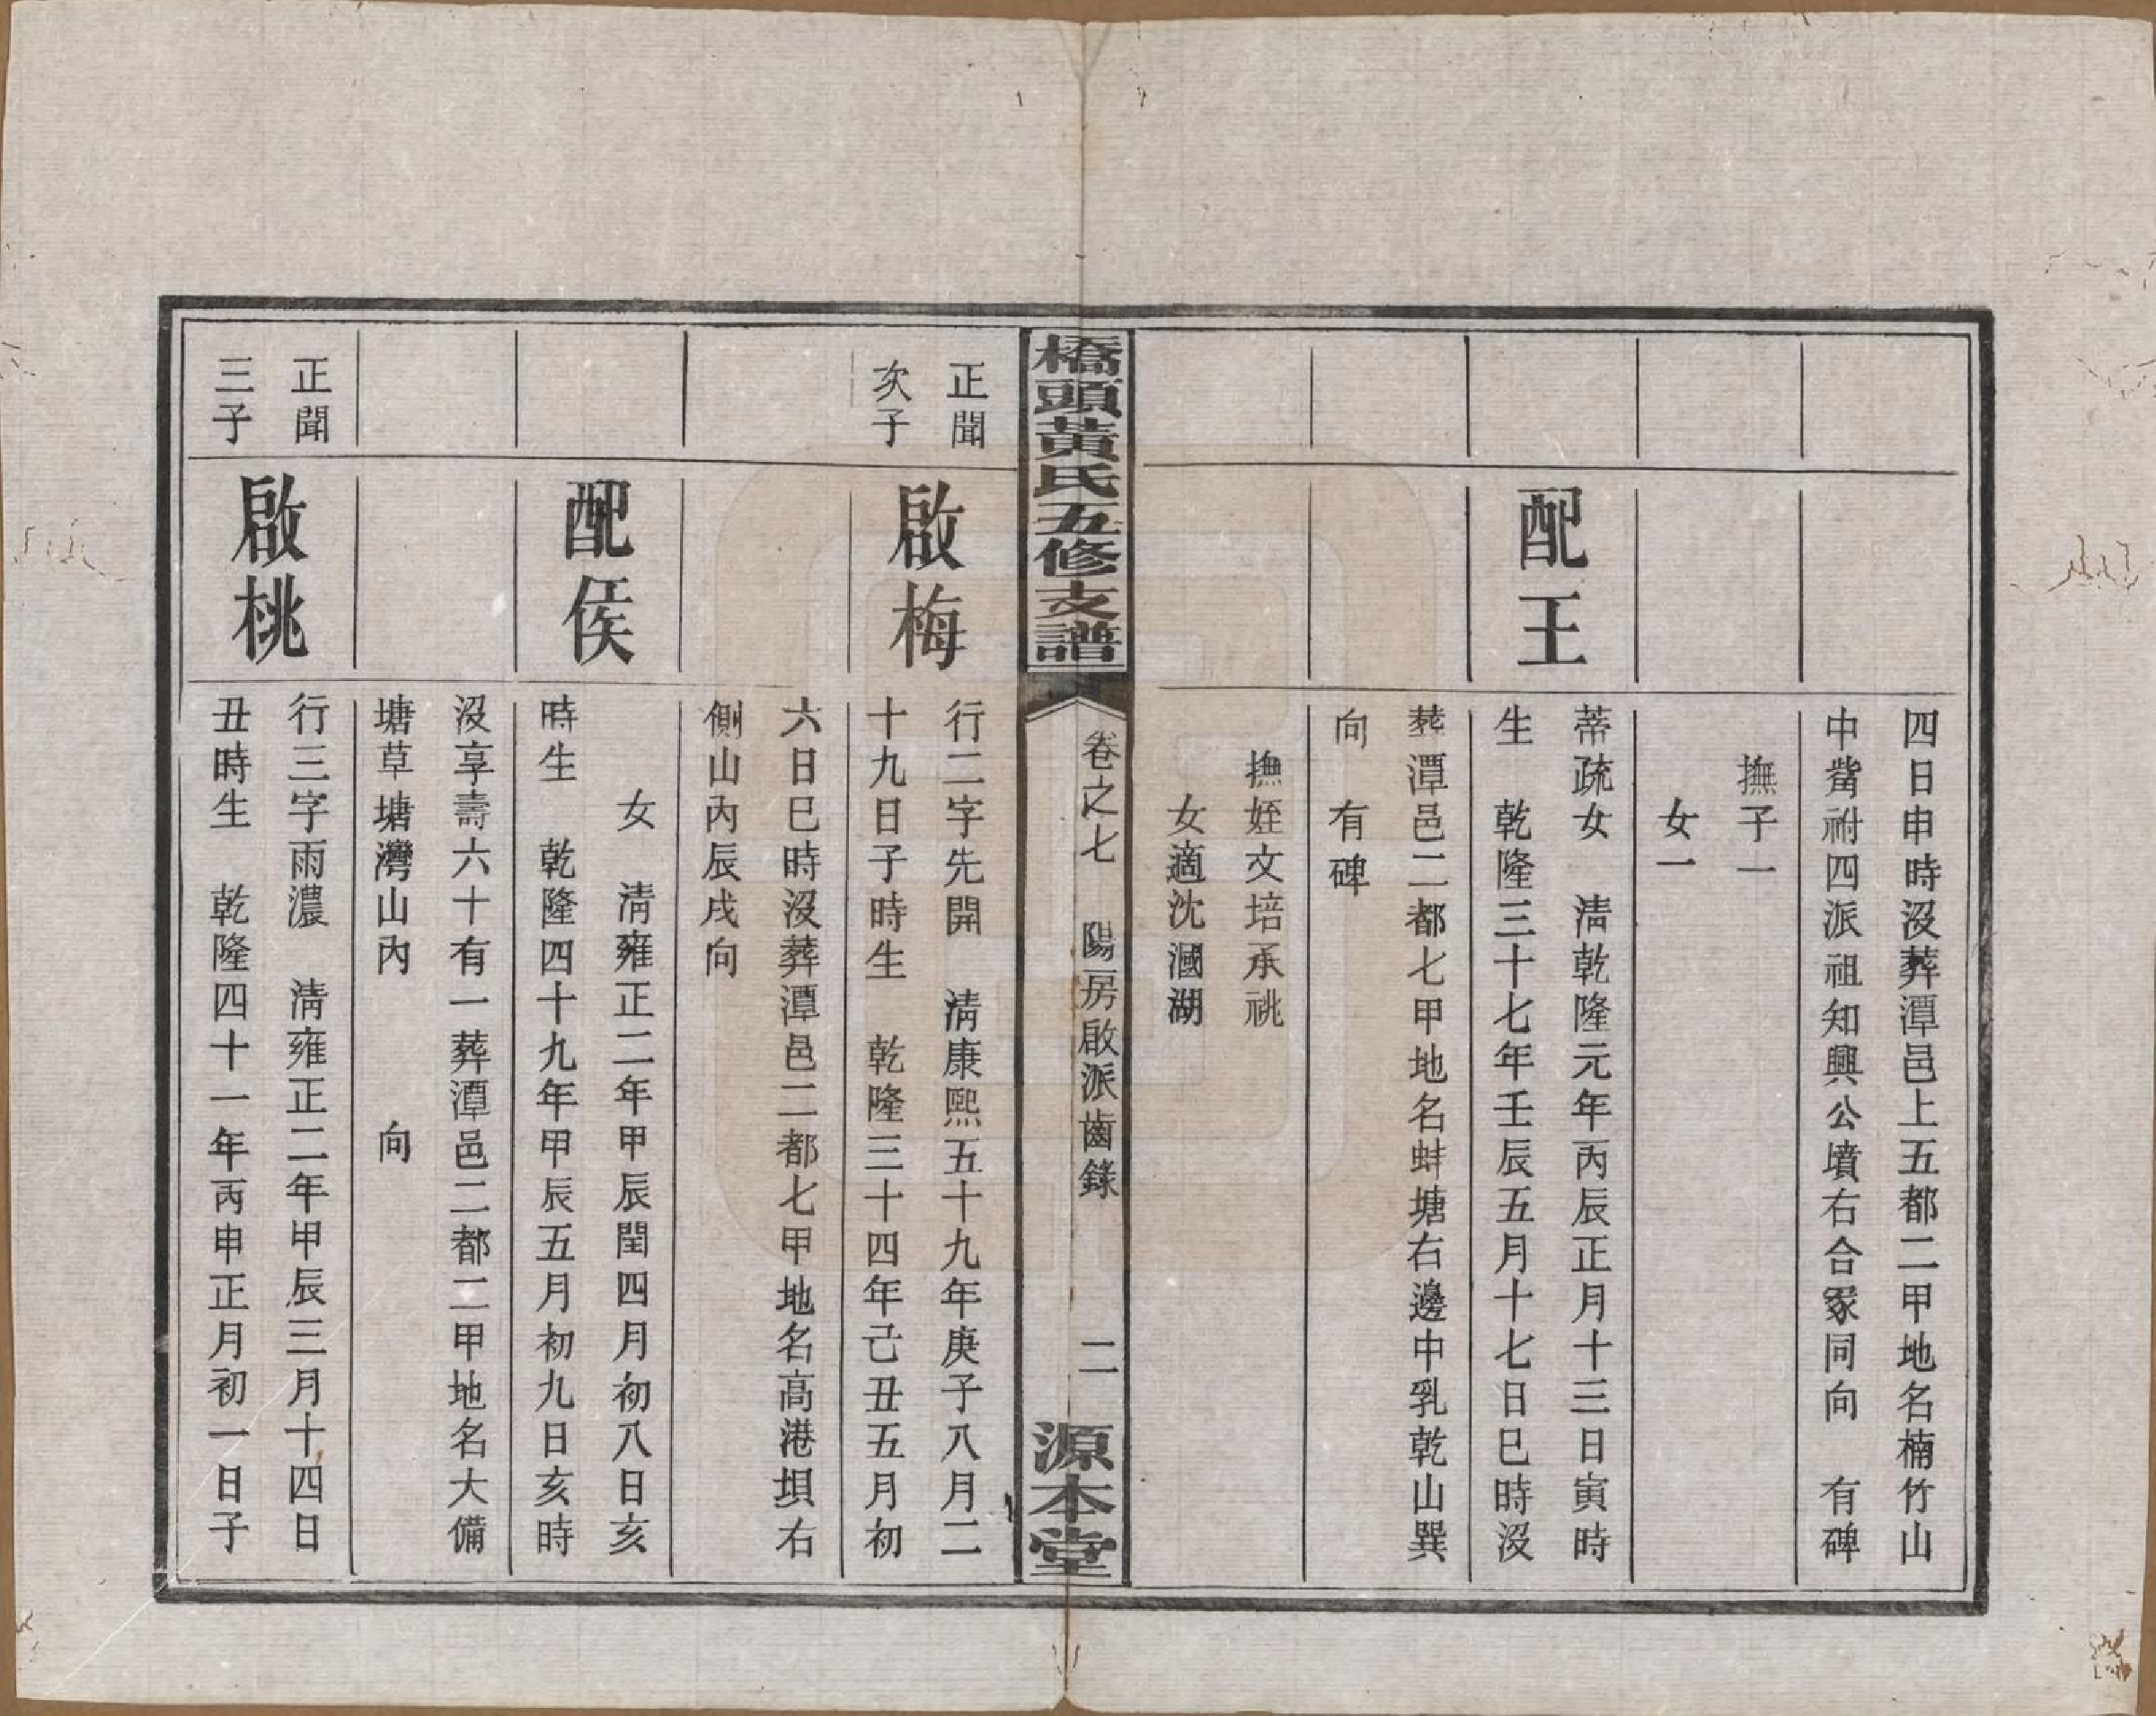 四日申時沒葬潭邑上五都二甲地名楠竹山
中觜祔四派祖知興公墳右合冢同向　有碑
撫子一
女一
配王
蒂疏女　清乾隆元年丙辰正月十三日寅時
生　乾隆三十七年壬辰五月十七日巳時沒
葬潭邑二都七甲地名蚌塘右邊中乳乾山巽
向　有碑
撫姪文培承祧
女適沈漍湖
橋頭黃氏五修支譜
卷之七　陽房啟派齒錄
二
源本堂
正聞
次子
啟梅
行二字先開　清康熙五十九年庚子八月二
十九日子時生　乾隆三十四年己丑五月初
六日巳時沒葬潭邑二都七甲地名高港坝右
側山內辰戌向
配侯
女　清雍正二年甲辰閏四月初八日亥
時生　乾隆四十九年甲辰五月初九日亥時
沒享壽六十有一葬潭邑二都二甲地名大備
塘草塘灣山內　　　向
正聞
三子
啟桃
行三字雨濃　清雍正二年甲辰三月十四日
丑時生　乾隆四十一年丙申正月初一日子